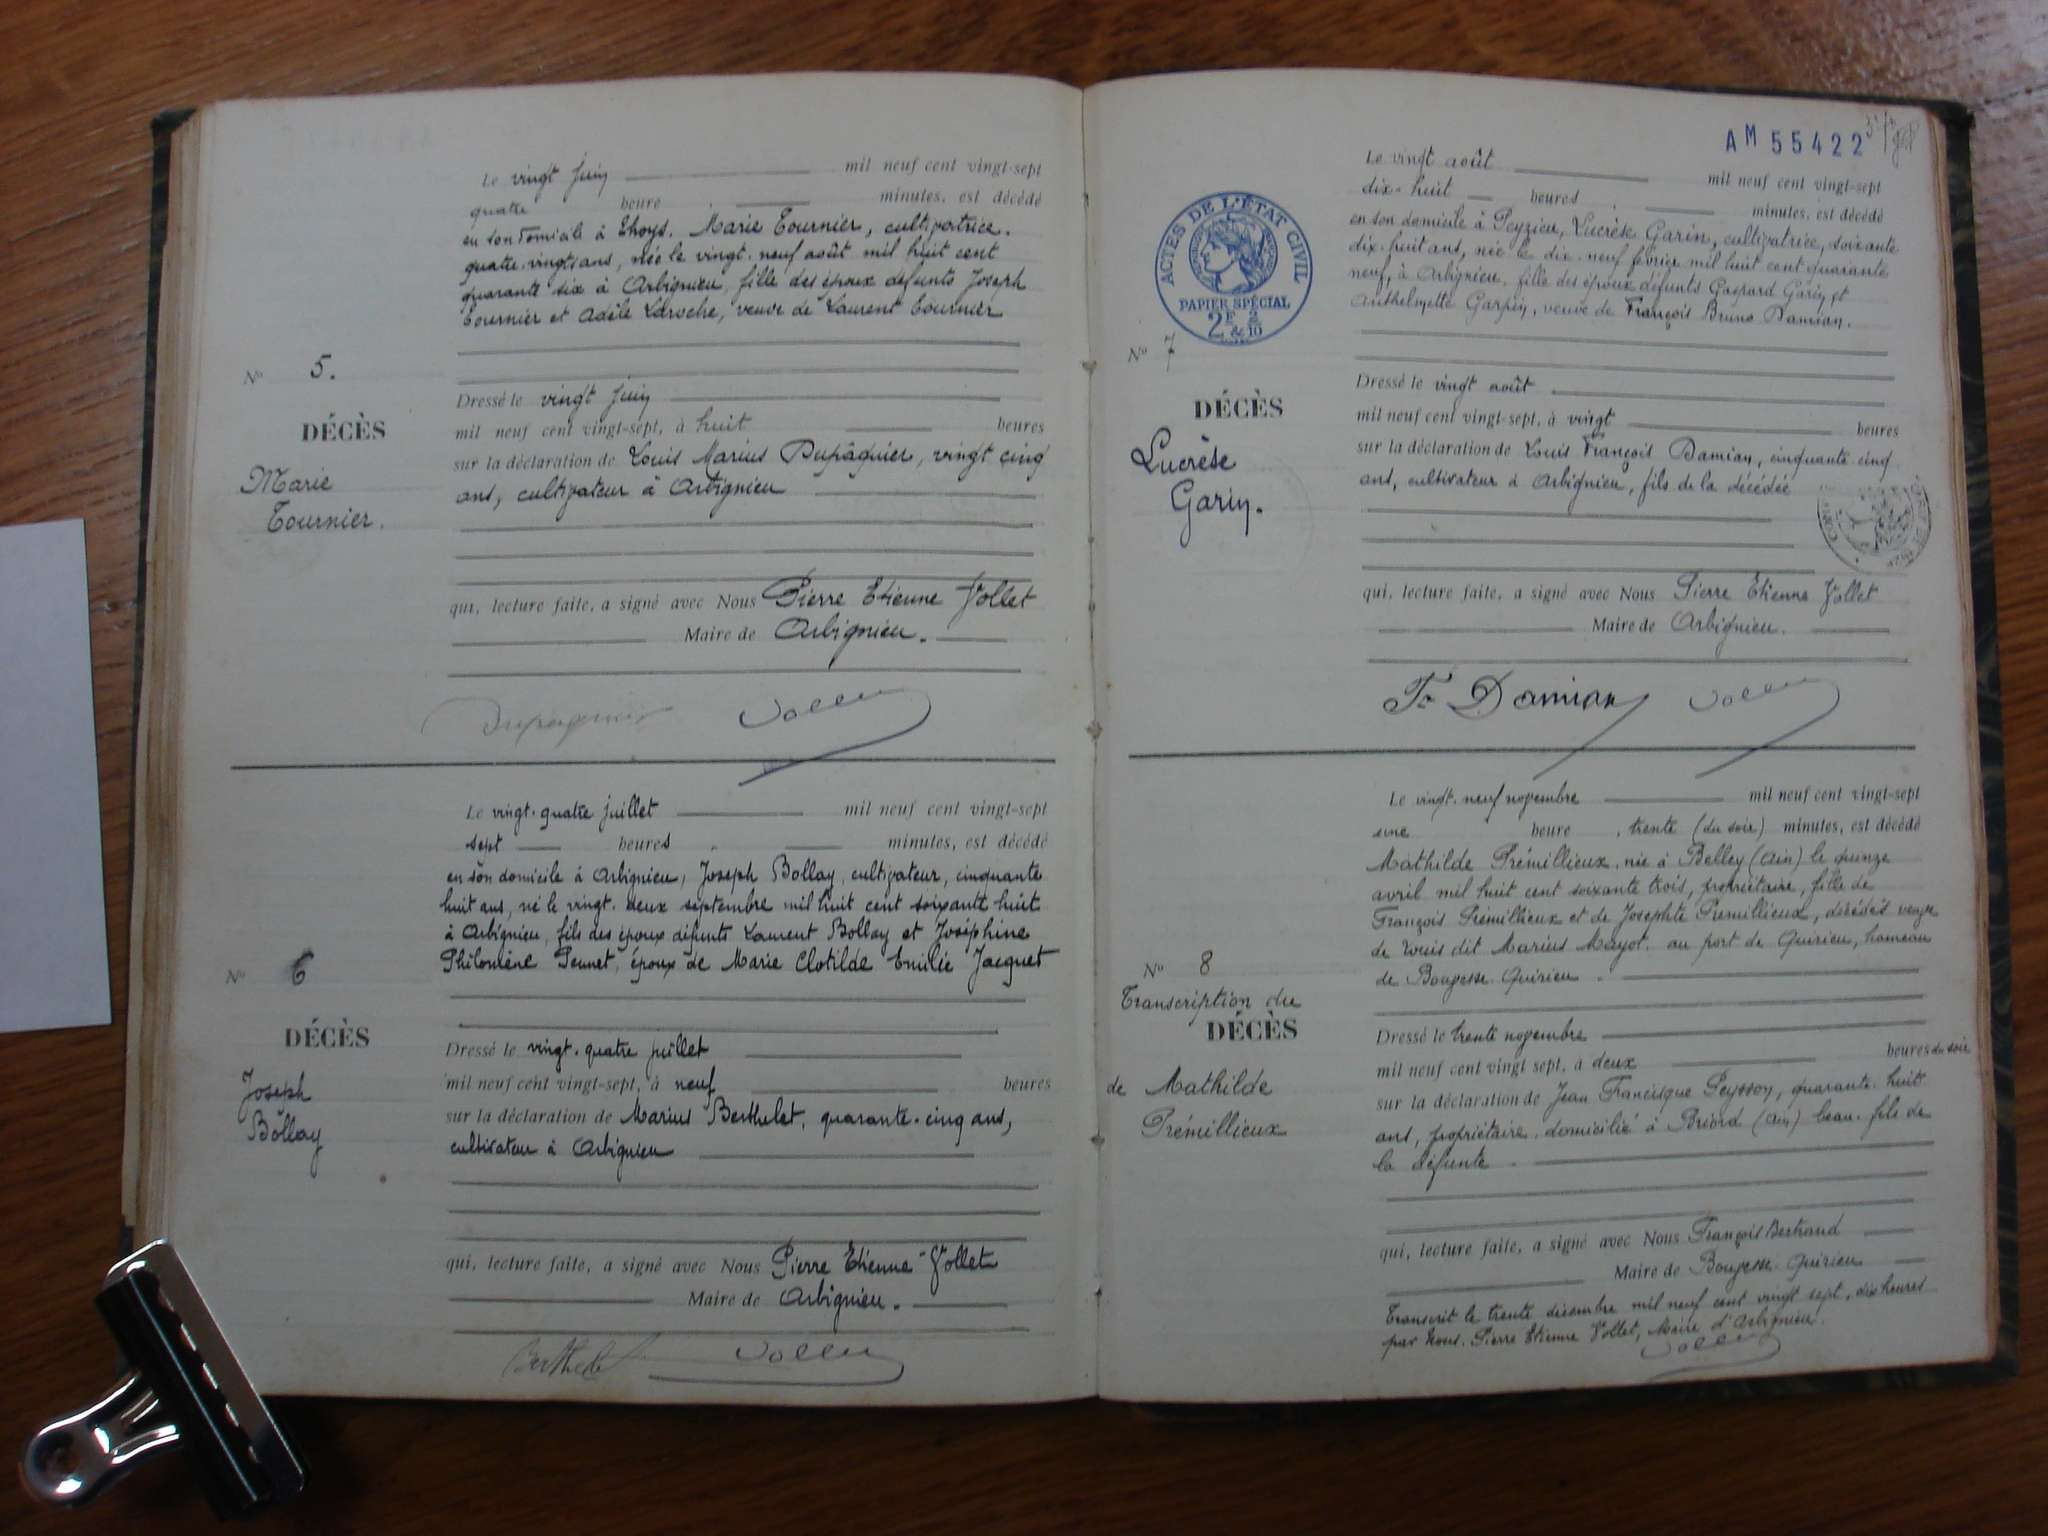 Le vingt juin mil neuf cent vingt-sept
quatre heure minutes, est décédé
en son domicile à Thoys, Marie Tournier, cultivatrice,
quatre-vingts ans, née le vingt-neuf août mil huit cent
quarante six à Arbignieu, fille des époux défunts Joseph
Tournier et Adèle Laroche, veuve de Laurent Tournier
No 5.
DÉCÈS
Marie
Tournier.
Dressé le vingt juin
mil neuf cent vingt-sept, à huit heures
sur la déclaration de Louis Marius Dupâquier, vingt cinq
ans, cultivateur à Arbignieu
qui, lecture faite, a signé avec Nous Pierre Etienne Vollet
Maire de Arbignieu.
Dupaquier Vollet
Le vingt-quatre juillet mil neuf cent vingt-sept
sept heures minutes, est décédé
en son domicile à Arbignieu, Joseph Bollay, cultivateur, cinquante
huit ans, né le vingt-deux septembre mil huit cent soixante huit
à Arbignieu, fils des époux défunts Laurent Bollay et Joséphine
Philomène Peunet, époux de Marie Clotilde Emilie Jacquet
No 6
DÉCÈS
Joseph
Bollay
Dressé le vingt-quatre juillet
mil neuf cent vingt-sept, à neuf heures
sur la déclaration de Marius Berthelet, quarante-cinq ans,
cultivateur à Arbignieu
qui, lecture faite, a signé avec Nous Pierre Etienne Vollet
Maire de Arbignieu.
Berthelet Vollet
AM 55422
ACTES DE L'ÉTAT CIVIL
PAPIER SPÉCIAL
2F & 2/10
Le vingt août mil neuf cent vingt-sept
dix-huit heures minutes, est décédé
en son domicile à Peyzieu, Lucrèse Garin, cultivatrice, soixante
dix-huit ans, née le dix-neuf février mil huit cent quarante
neuf, à Arbignieu, fille des époux défunts Gaspard Garin et
Anthelmette Garpin, veuve de François Bruno Damian.
No 7
DÉCÈS
Lucrèse
Garin.
Dressé le vingt août
mil neuf cent vingt-sept, à vingt heures
sur la déclaration de Louis François Damian, cinquante cinq
ans, cultivateur à Arbignieu, fils de la décédée
qui, lecture faite, a signé avec Nous Pierre Etienne Vollet
Maire de Arbignieu.
Fs Damian Vollet
Le vingt-neuf novembre mil neuf cent vingt-sept
une heure, trente (du soir) minutes, est décédé
Mathilde Prémillieux, née à Belley (Ain) le quinze
avril mil huit cent soixante trois, propriétaire, fille de
François Prémillieux et de Josephte Prémillieux, décédés veuve
de Louis dit Marius Mayot. au port de Quirieu, hameau
de Bouvesse-Quirieu.
No 8
Transcription du
DÉCÈS
de Mathilde
Prémillieux
Dressé le trente novembre
mil neuf cent vingt sept, à deux heures du soir
sur la déclaration de Jean Francisque Peysson, quarante-huit
ans, propriétaire, domicilié à Briord (Ain) beau-fils de
la défunte.
qui, lecture faite, a signé avec Nous François Bertrand
Maire de Bouvesse-Quirieu
Transcrit le trente décembre mil neuf cent vingt sept, dix heures
par Nous, Pierre Etienne Vollet, Maire d'Arbignieu.
Vollet